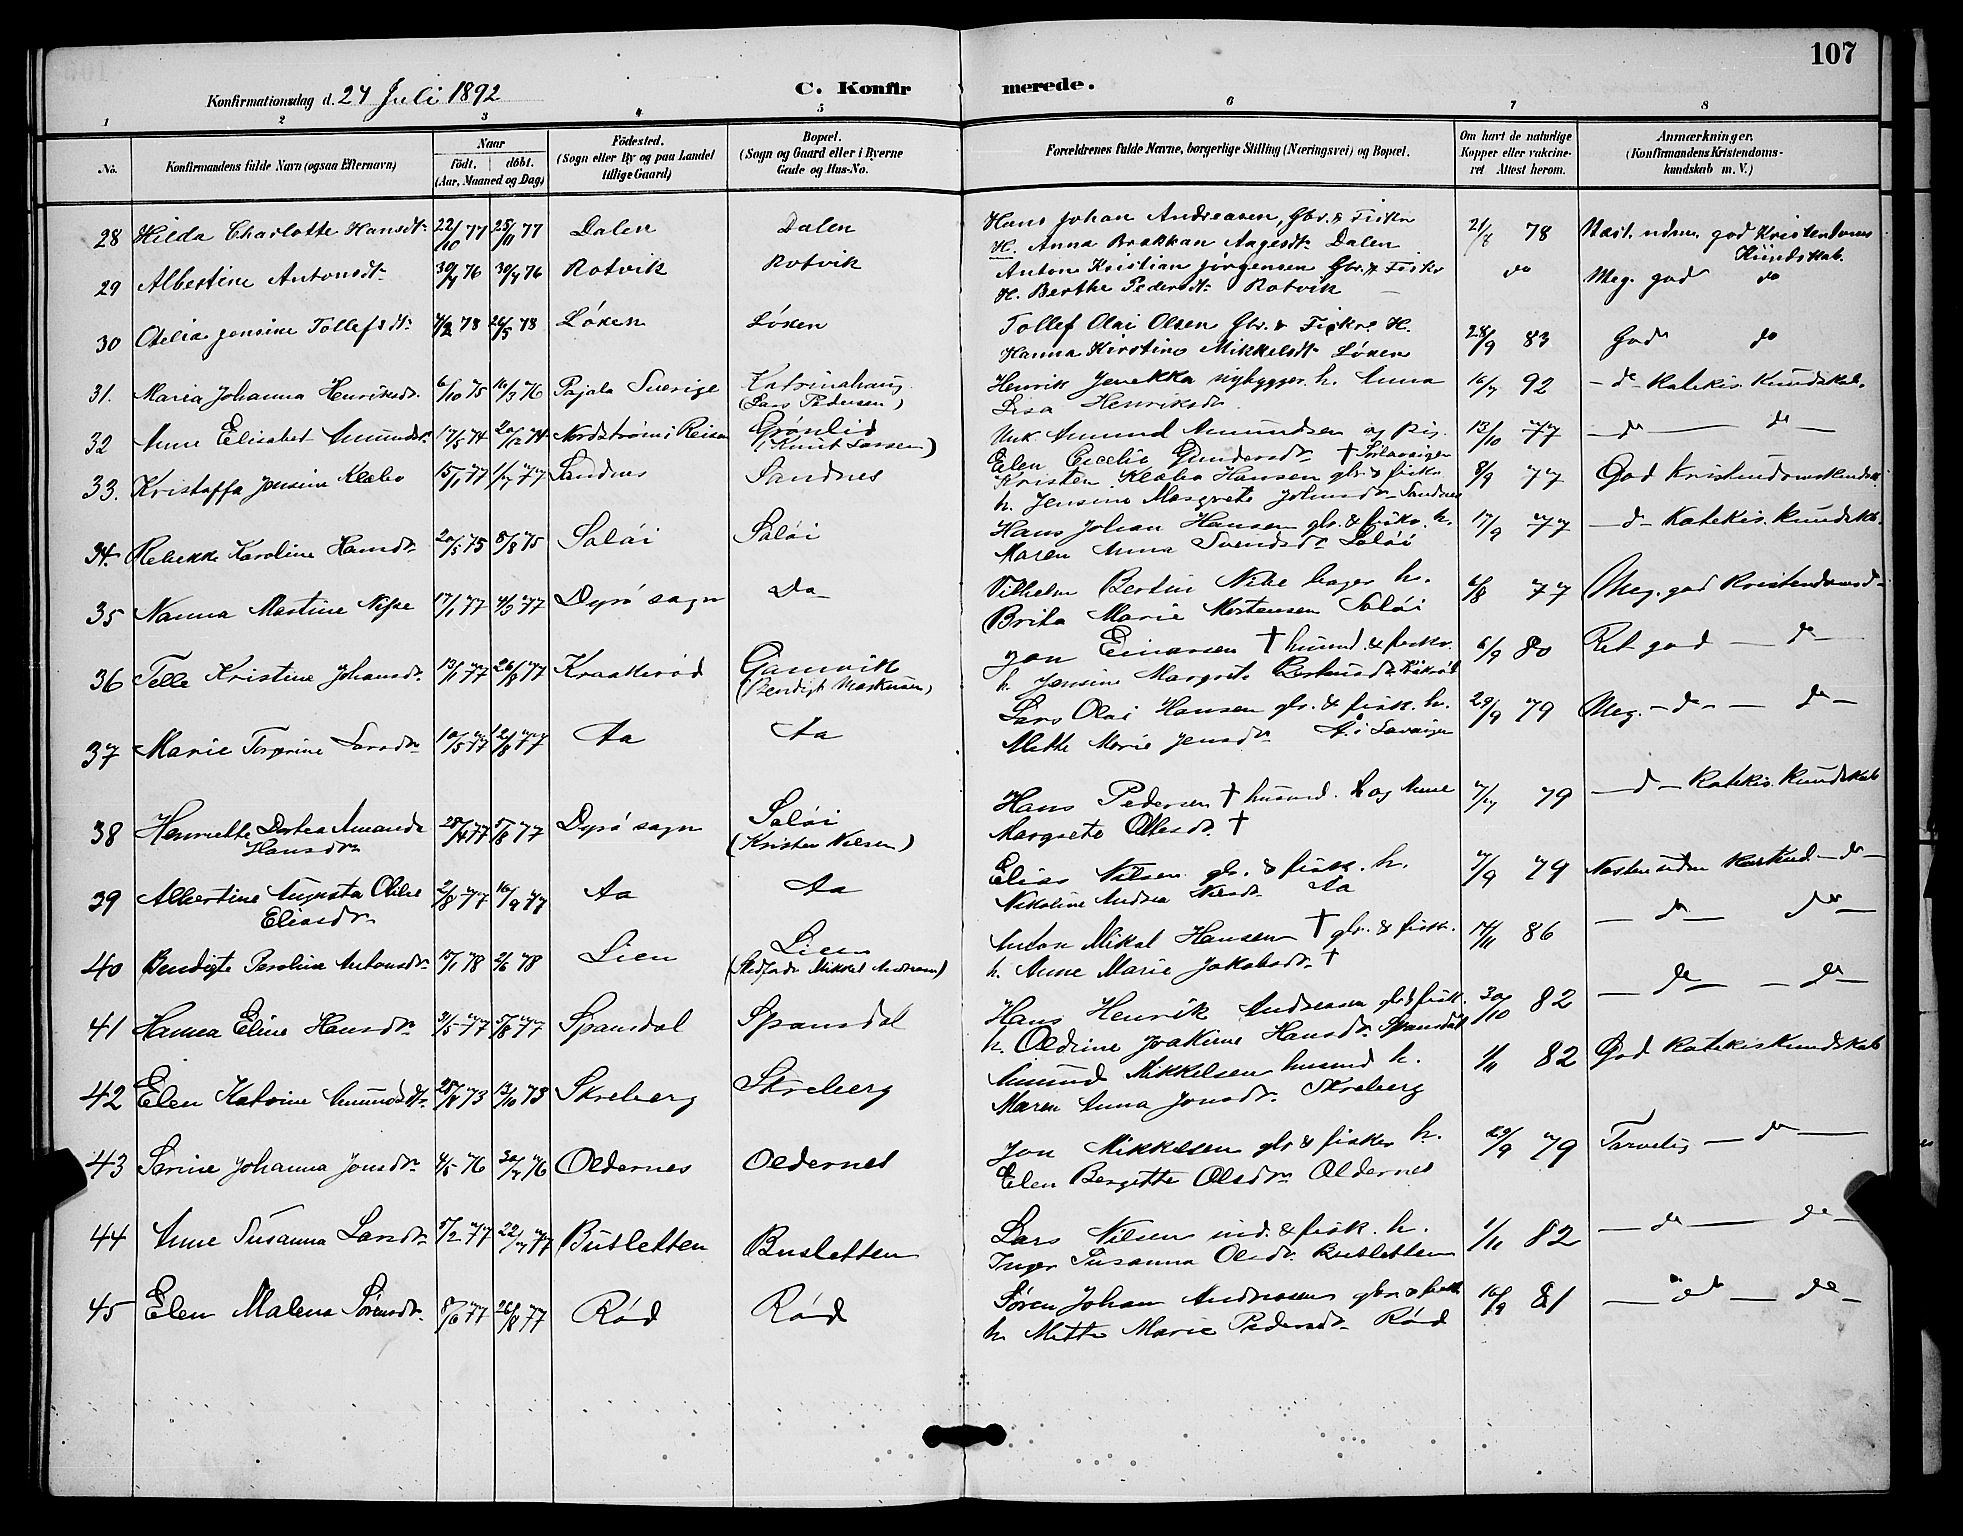 107
Konfirmationsdag d. 24 Juli 1892 C. Konfirmerede.
1 2 3 4 5 6 7 8
No. Konfirmandens fulde Navn (ogsaa Efternavn) Naar født, døbt. (Aar, Maaned og Dag) Fødested. (Sogn eller By og paa Landet tillige Gaard) Bopæl. (Sogn og Gaard eller i Byerne Gade og Hus-No. Forældrenes fulde Navne, borgerlige Stilling (Næringsvei) og Bopæl. Om havt de naturlige Kopper eller vaccineret Attest herom. Anmærkninger. (Konfirmandens Kristendomskundskab m. V.)
28 Hilda Charlotte Hansdt. 22/10 77 25/11 77 Dalen Dalen Hans Johan Andreasen, Gbr. & Fisker 21/8 78 Næst. udm. god Kristendoms
H. Anna Brakkan Aagesdt. Dalen Kundskab.
29 Albertine Antonsdt. 30/4 76 30/7 76 Rotvik Rotvik Anton Kristian Jørgensen Gbr. & Fisker do Meg. god do
H. Berthe Pedersdt. Rotvik
30 Otelia Jensine Tollefsdt. 4/2 78 26/5 78 Løxen Løxen Tollef Olai Olsen Gbr. & Fisker H. 28/9 83 God do
Hanna Kirstine Mikkelsdt. Løxen
31. Maria Johanna Henriksdr. 6/10 75 16/3 76 Pajala Sverige Katrinahaug Henrik nybygger h. Anna 16/7 92 - do - Katekis. Kundskab.
(Lars Pedersen) Lisa Henriksdr.
32 Anne Elisabet Amundsdr. 17/5 74 20/12 74 Nordstrøm i Reisen Grønlid Unk. Amund Amundsen og pig. 13/10 77 - do - do -
(Knut Larsen) Elen Cecelie Gundersdr. †
33. Kristoffa Jensine Klæbo 15/1 77 1/7 77 Sandnes Sandnes Kristen Klæbo Hansen gbr. & fisker 8/9 77 God Kristendomskundsk.
h. Jensine Margrete Johnsdr. Sandnes
34. Rebekka Karoline Hansdr. 20/5 75 8/8 75 Saløi Saløi Hans Johan Hansen gbr. & fisker. h. 17/9 77 - do - Katekis. kundskb.
Maren Anna Svendsdr. Saløi
35 Nanna Martine Nipe 17/1 77 4/3 77 Dyrø sogn Do Vilhelm Bertin Nibe bager h. 6/8 77 Meg. god Kristendomsk -
Brita Marie Mortensen Saløi
36 Telle Kristine Johansdr. 13/1 77 26/8 77 Kraakerød Gamvik Jon Einarsen † husmd. & fisker. 6/9 80 Ret god - do -
(Bendigt Markusen) h. Jensine Margrete
37 Marie Torgrine Larsdr. 10/5 77 12/8 77 Aa Aa Lars Olai Hansen gbr. & fisk. h. 29/9 79 Meg. - do - - do -
Mette Marie Jensdr. Aa i Lavangen
38 Henriette Dortea Amanda 28/4 77 5/8 77 Dyrø sogn Saløi Hans Pedersen † husmd. h og Anne 79 - do - Katekis. Kundskab
Hansdr. (Kristen Nilsen) Margrete Olesdr. †
39 Albertine Augusta Otilie 2/8 77 16/9 77 Aa Aa Elias Nilsen gbr. & fisk. h. 7/9 79 Næsten udm Kristend - do -
Eliasdr. Nikoline Andrea Nilsdr. Aa
40 Bendigte Peroline Antonsdr. 15/1 78 2/6 78 Lien Lien Anton Mikal Hansen † gbr. & fisk. 14/11 86 - do - do -
(Stedfader Mikkel Andreasen) h. Anne Marie Jakobsdr. †
41 Hanna Eline Hansdr. 31/5 77 5/8 77 Spansdal Spansdal Hans Henrik Andreasen gbr & fisk. 30/10 82 - do - - do -
h. Oldrine Joakime Hansdr. Spansdal
42 Elen Katrine Amundsdtr. 28/8 73 12/10 73 Skreberg Skreberg Amund Mikkelsen husmd h. 1/11 82 God Katekiskundskab
Maren Anna Jonsdr. Skreberg
43 Serine Johanna Jonsdr. 4/5 76 30/7 76 Oldernes Oldernes Jon Mikkelsen gbr & fisker h. 29/9 79 Tarvelig - do -
Elen Bergitte Olsdr. Oldernes
44 Anne Susanna Larsdr. 5/2 77 22/7 77 Butletten Butletten Lars Nilsen ind. & fisk. h. 1/11 82 - do - do -
Inger Susanna Olsdr. Butletten
45 Elen Malena Sørensdr. 8/6 77 26/8 77 Rød Rød Søren Johan Andreasen gbr. & fisk 16/9 81 - do - do -
h. Mette Marie Pedersdr. Rød